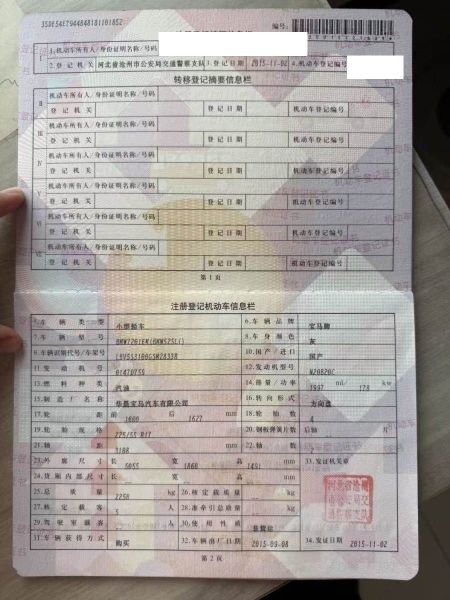 编号:
1.机动车所有人/身份证明名称/号码
2.登记机关 河北省沧州市公安局交通警察支队 3.登记日期 2015-11-02 4.机动车登记编号
转移登记摘要信息栏
Ⅱ 机动车所有人/身份证明名称/号码
登记机关 登记日期 机动车登记编号
Ⅲ 机动车所有人/身份证明名称/号码
登记机关 登记日期 机动车登记编号
Ⅳ 机动车所有人/身份证明名称/号码
登记机关 登记日期 机动车登记编号
Ⅴ 机动车所有人/身份证明名称/号码
登记机关 登记日期 机动车登记编号
Ⅵ 机动车所有人/身份证明名称/号码
登记机关 登记日期 机动车登记编号
Ⅶ 机动车所有人/身份证明名称/号码
登记机关 登记日期 机动车登记编号
第1页
注册登记机动车信息栏
5.车辆类型 小型轿车 6.车辆品牌 宝马牌
7.车辆型号 8.车身颜色 灰
9.车辆识别代号/车架号 10.国产/进口 国产
11.发动机号 12.发动机型号 N20B20C
13.燃料种类 汽油 14.排量/功率 1997 ml/ kw
15.制造厂名称 华晨宝马汽车有限公司 16.转向形式 方向盘
17.轮距 前 1600 后 1627 mm 18.轮胎数
19.轮胎规格 R17 20.钢板弹簧片数 后轴 片
21.轴距 3108 mm 22.轴数
23.外廓尺寸 长 5055 宽 1860 高 1491 mm 33.发证机关章
24.货厢内部尺寸 长 宽 高 mm
25.总质量 2250 kg 26.核定载质量 kg
27.核定载客 5 人 28.准牵引总质量 kg
29.驾驶室载客 人 30.使用性质 非营运
31.车辆获得方式 购买 32.车辆出厂日期 2015-09-08 34.发证日期 2015-11-02
第2页